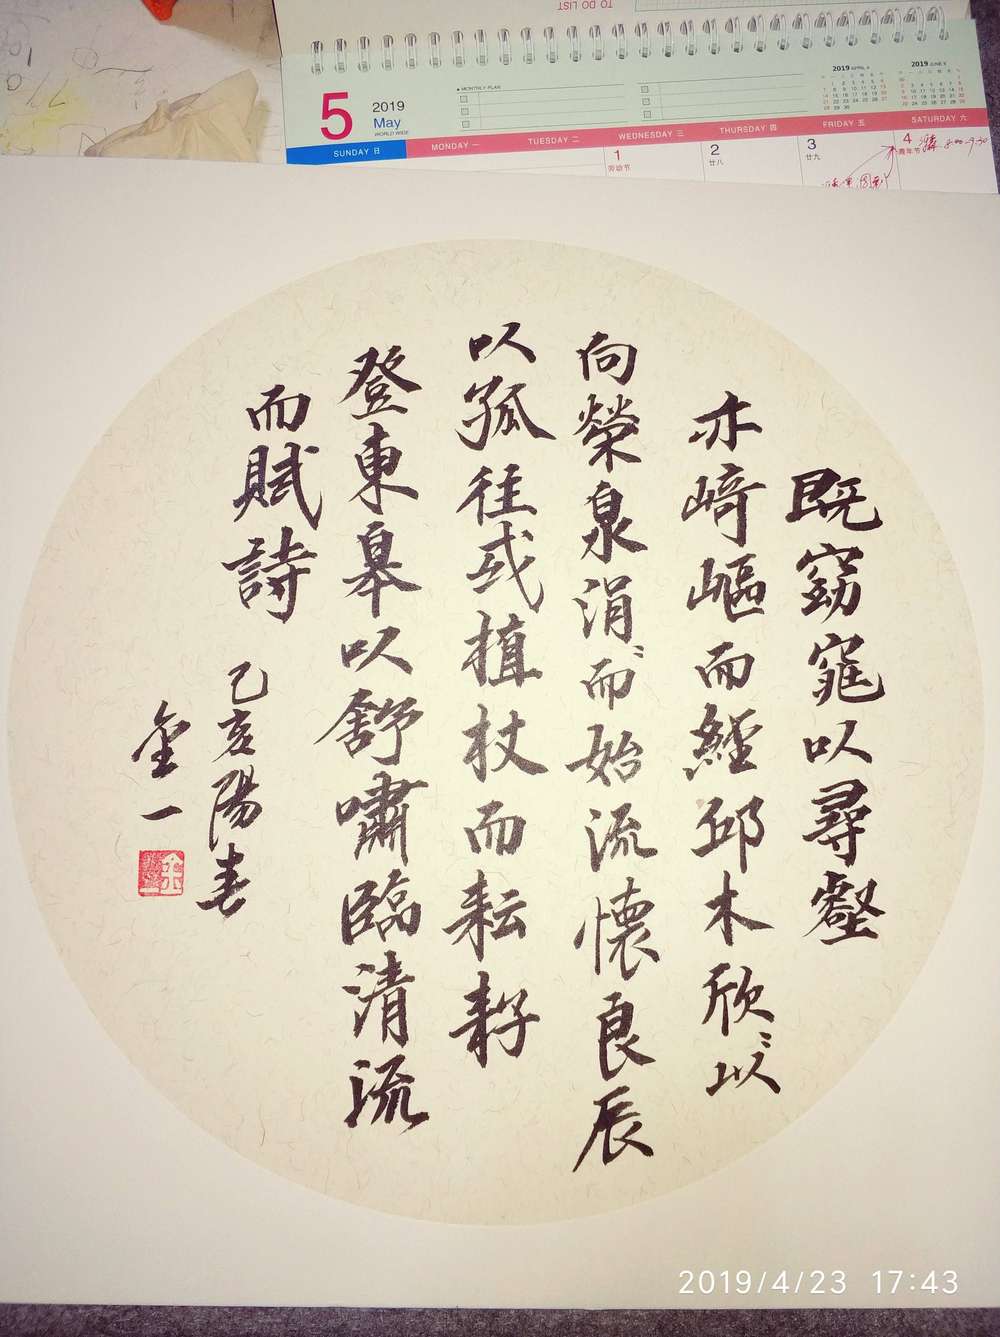 TO DO LIST
5
2019
May
WORLD WIDE
MONTHLY PLAN
2019 APRIL 4
2019 JUNE 6
SUNDAY 日
MONDAY 一
TUESDAY 二
WEDNESDAY 三
THURSDAY 四
FRIDAY 五
SATURDAY 六
1
劳动节
2
廿八
3
廿九
4
青年节
既窈窕以尋壑
亦崎嶇而經邱木欣〻以
向榮泉涓〻而始流懷良辰
以孤往或植杖而耘耔
登東皋以舒嘯臨清流
而賦詩
乙亥陽春
金一
2019/4/23 17:43